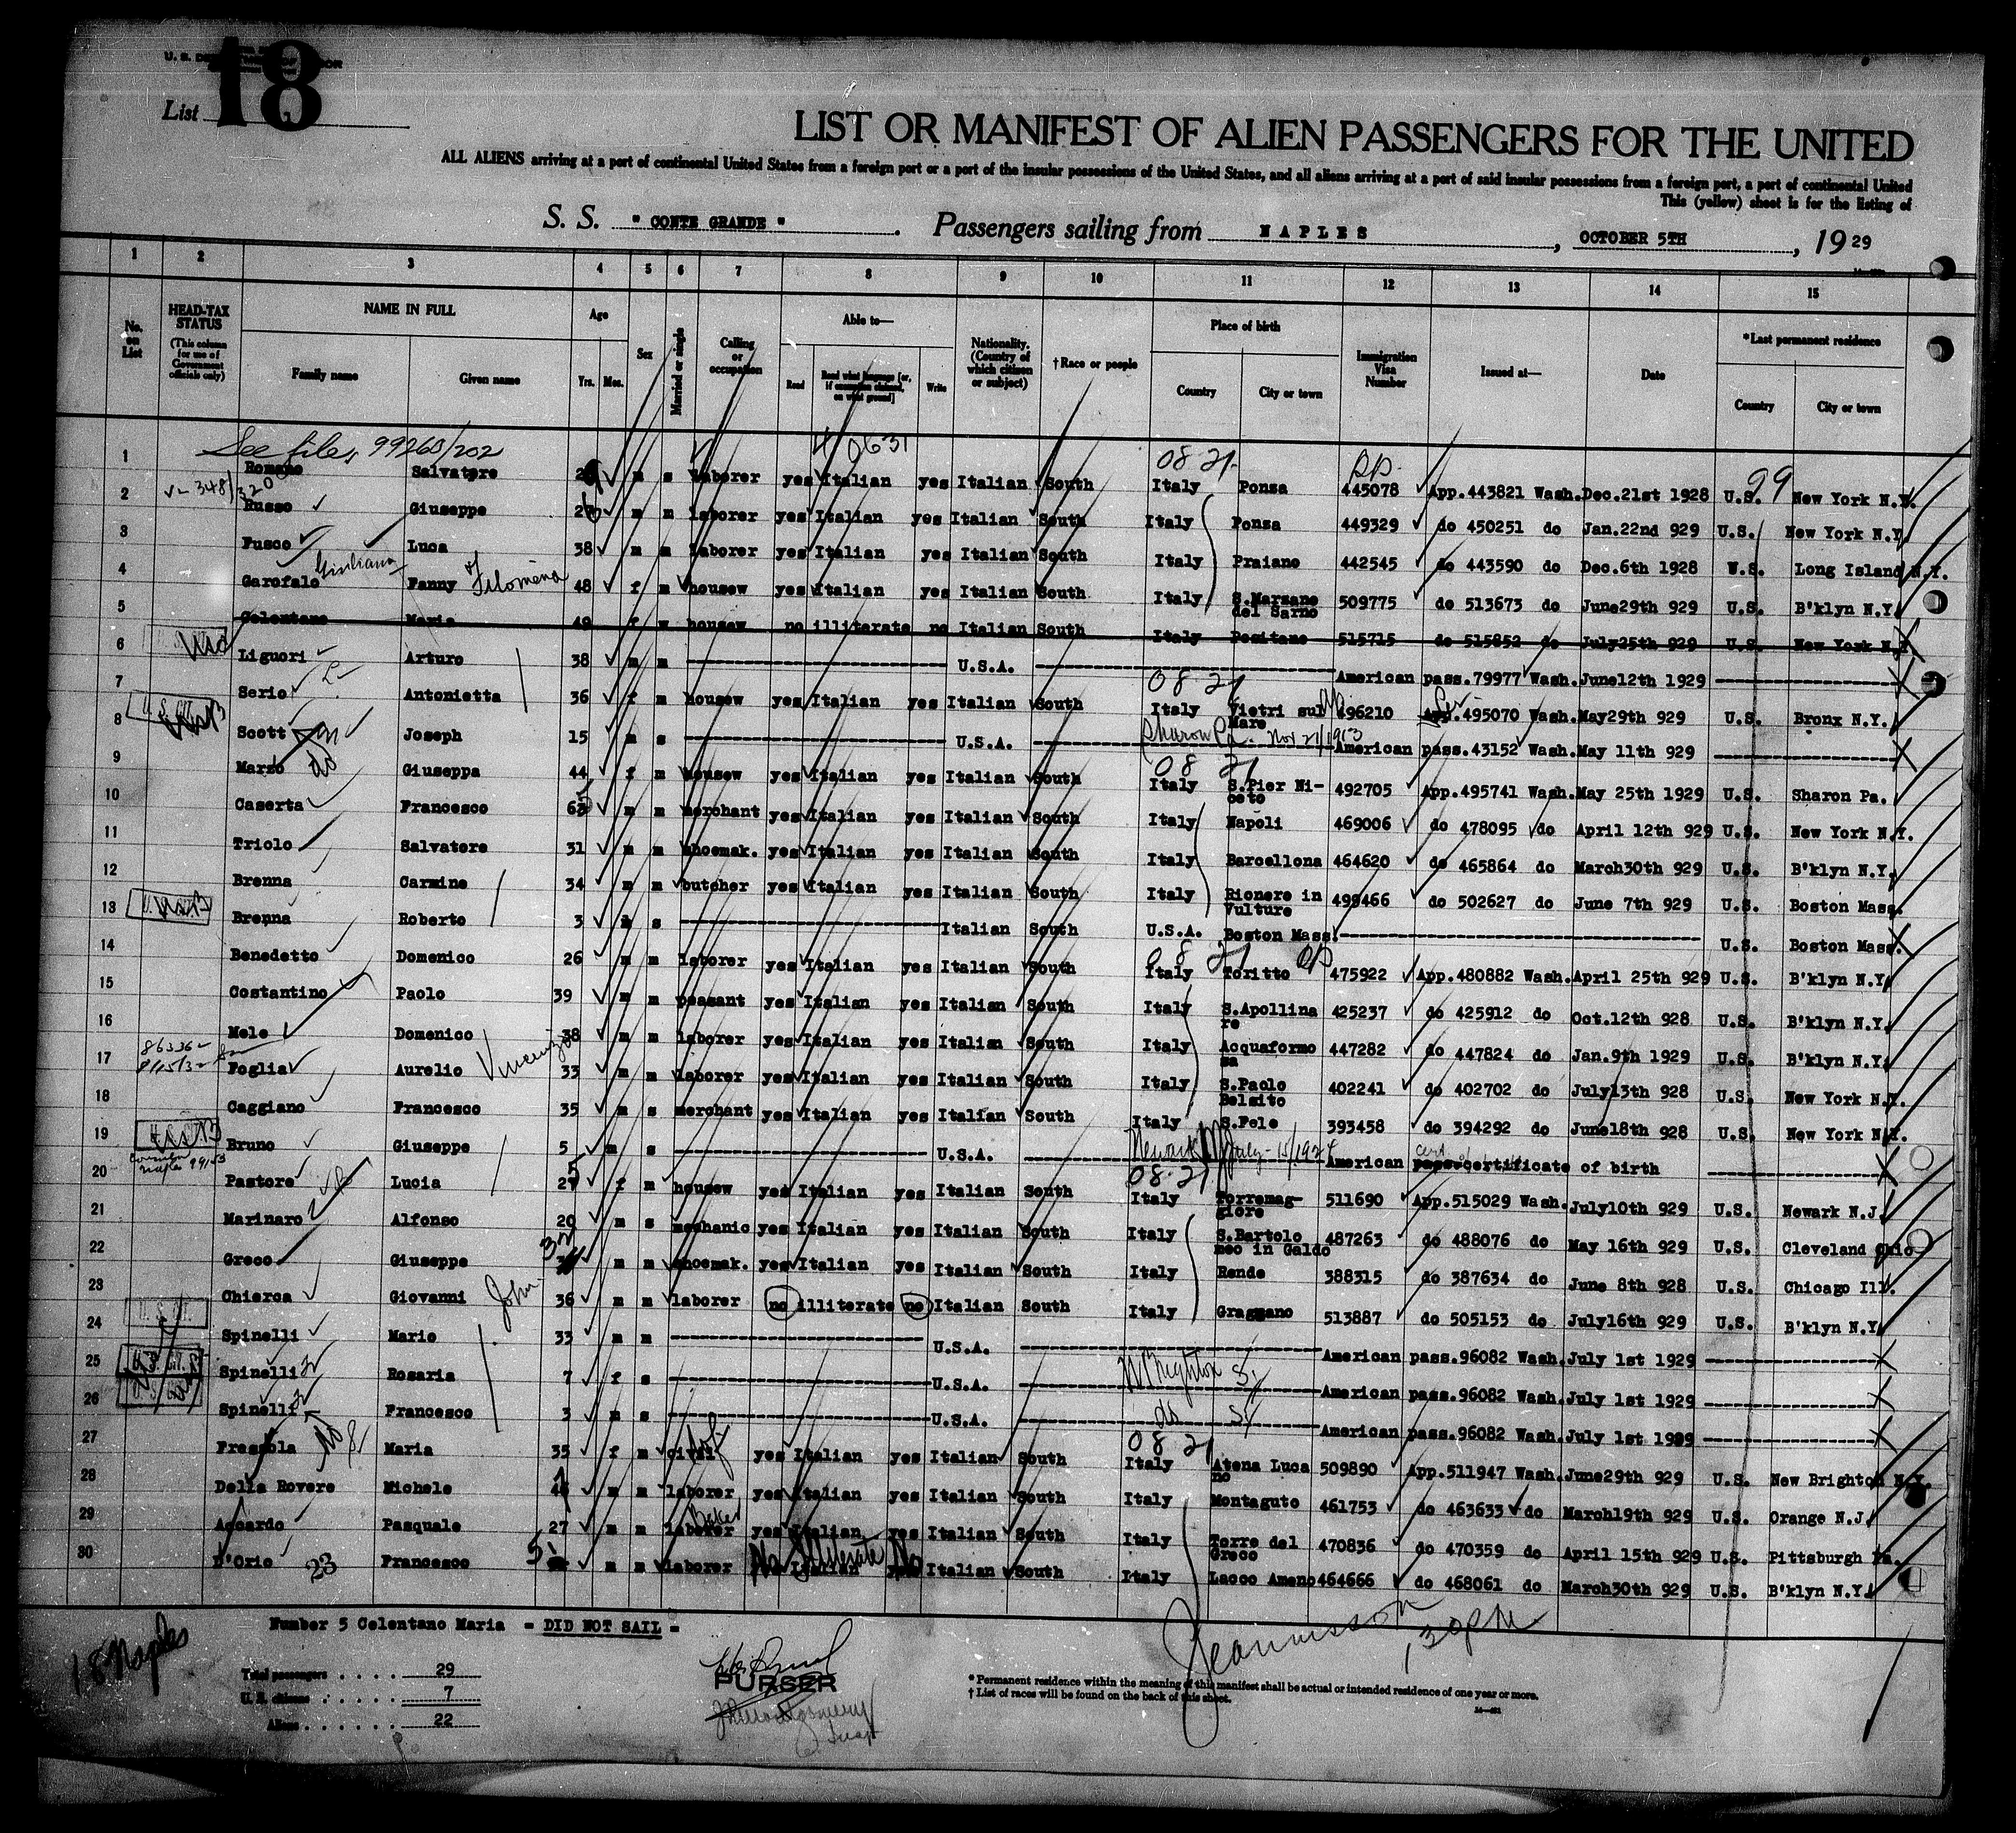 U. S. DE
18
List
LIST OR MANIFEST OF ALIEN PASSENGERS FOR THE UNITED
ALL ALIENS arriving at a port of continental United States from a foreign port or a port of the insular possessions of the United States, and all aliens arriving at a port of said insular possessions from a foreign port, a part of continental United
This (yellow) sheet is for the listing of
S. S. " CONTE GRANDE " . Passengers sailing from NAPLES , OCTOBER 5TH , 19 29
1 2 3 4 5 6 7 8 9 10 11 12 13 14 15
No. on List HEAD-TAX STATUS (This column for use of Government officials only) NAME IN FULL Family name Given name Age Yrs. Mos. Sex Married or single Calling or occupation Able to— Read Read what language [or, if exemption claimed, on what ground] Write Nationality. (Country of which citizen or subject) †Race or people Place of birth Country City or town Immigration Visa Number Issued at— Date *Last permanent residence Country City or town
See files, 99263/202 0631 08 21 99
1 Romano Salvatore m s laborer yes Italian yes Italian South Italy Ponza 445078 App.443821 Wash. Dec.21st 1928 U.S. New York N.Y.
2 Russo Giuseppe m m laborer yes Italian yes Italian South Italy Ponza 449329 do 450251 do Jan.22nd 929 U.S. New York N.Y.
3 Fusco Luca 38 m m laborer yes Italian yes Italian South Italy Praiano 442545 do 443590 do Dec.6th 1928 U.S. Long Island N.Y.
4 Garofalo Giuliana Fanny of Filomena 48 f m housew yes Italian yes Italian South Italy S.Marzano del Sarno 509775 do 513673 do June29th 929 U.S. B'klyn N.Y.
5 Celentano Maria 49 f w housew no illiterate no Italian South Italy Positano 515715 do 515852 do July25th 929 U.S. New York N.Y.
6 Liguori Arturo 38 m m U.S.A. American pass.79977 Wash. June12th 1929
7 Serio Antonietta 36 f m housew yes Italian yes Italian South 08 21 Italy Vietri sul Mare 496210 495070 Wash. May29th 929 U.S. Bronx N.Y.
8 Scott Joseph 15 m s U.S.A. Sharon Pa. Nov 21/1913 American pass.43152 Wash. May 11th 929
9 Marzo do Giuseppa 44 f m housew yes Italian yes Italian South 08 21 Italy S.Pier Niceto 492705 App.495741 Wash. May 25th 1929 U.S. Sharon Pa.
10 Caserta Francesco m m merchant yes Italian yes Italian South Italy Napoli 469006 do 478095 do April 12th 929 U.S. New York N.Y.
11 Triolo Salvatore 31 m m shoemak. yes Italian yes Italian South Italy Barcellona 464620 do 465864 do March30th 929 U.S. B'klyn N.Y.
12 Brenna Carmine 34 m m butcher yes Italian yes Italian South Italy Rionero in Vulture 499466 do 502627 do June 7th 929 U.S. Boston Mass.
13 Brenna Roberto 3 m s Italian South U.S.A. Boston Mass. U.S. Boston Mass.
14 Benedetto Domenico 26 m m laborer yes Italian yes Italian South 08 21 Italy Toritto 475922 App.480882 Wash. April 25th 929 U.S. B'klyn N.Y.
15 Costantino Paolo 39 m m peasant yes Italian yes Italian South Italy S.Apollina re 425237 do 425912 do Oct.12th 928 U.S. B'klyn N.Y.
16 Mele Domenico 38 m m laborer yes Italian yes Italian South Italy Acquaformo sa 447282 do 447824 do Jan.9th 1929 U.S. B'klyn N.Y.
17 Foglia Aurelio Vincenzo 33 m m laborer yes Italian yes Italian South Italy S.Paolo Belsito 402241 do 402702 do July13th 928 U.S. New York N.Y.
18 Caggiano Francesco 35 m s merchant yes Italian yes Italian South Italy S.Fele 393458 do 394292 do June18th 928 U.S. New York N.Y.
19 Bruno Giuseppe 5 m s U.S.A. Newark NJ July-15/1924 American pass. certificate of birth
20 Pastore Lucia f m housew yes Italian yes Italian South 08 21 Italy Torremaggiore 511690 App.515029 Wash. July10th 929 U.S. Newark N.J.
21 Marinaro Alfonso 20 m s mechanic yes Italian yes Italian South Italy S.Bartolo meo in Galdo 487263 do 488076 do May 16th 929 U.S. Cleveland Ohio
22 Greco Giuseppe 32 m m shoemak. yes Italian yes Italian South Italy Rende 388315 do 387634 do June 8th 928 U.S. Chicago Ill.
23 Chierca Giovanni John 36 m m laborer no illiterate no Italian South Italy Gragnano 513887 do 505153 do July16th 929 U.S. B'klyn N.Y.
24 Spinelli Mario 33 m m U.S.A. American pass.96082 Wash. July 1st 1929
25 Spinelli Rosaria 7 f s U.S.A. N Brighton SI American pass.96082 Wash. July 1st 1929
26 Spinelli Francesco 3 m s U.S.A. do SI American pass.96082 Wash. July 1st 1929
27 Fressola Maria 35 f m civil yes Italian yes Italian South 08 21 Italy Atena Luca no 509890 App.511947 Wash. June29th 929 U.S. New Brighton N.Y.
28 Della Rovere Michele m m laborer yes Italian yes Italian South Italy Montaguto 461753 do 463633 do March19th 929 U.S. Orange N.J.
29 Accardo Pasquale 27 m m laborer Baker yes Italian yes Italian South Italy Torre del Greco 470836 do 470359 do April 15th 929 U.S. Pittsburgh Pa.
30 D'Orio 23 Francesco m m laborer No Illiterate No Italian South Italy Lacco Ameno 464666 do 468061 do March30th 929 U.S. B'klyn N.Y.
Number 5 Celentano Maria = DID NOT SAIL =
18 Naples
Total passengers 29
U. S. citizens 7
Aliens 22
PURSER
1,30 PM
* Permanent residence within the meaning of this manifest shall be actual or intended residence of one year or more.
† List of races will be found on the back of this sheet.